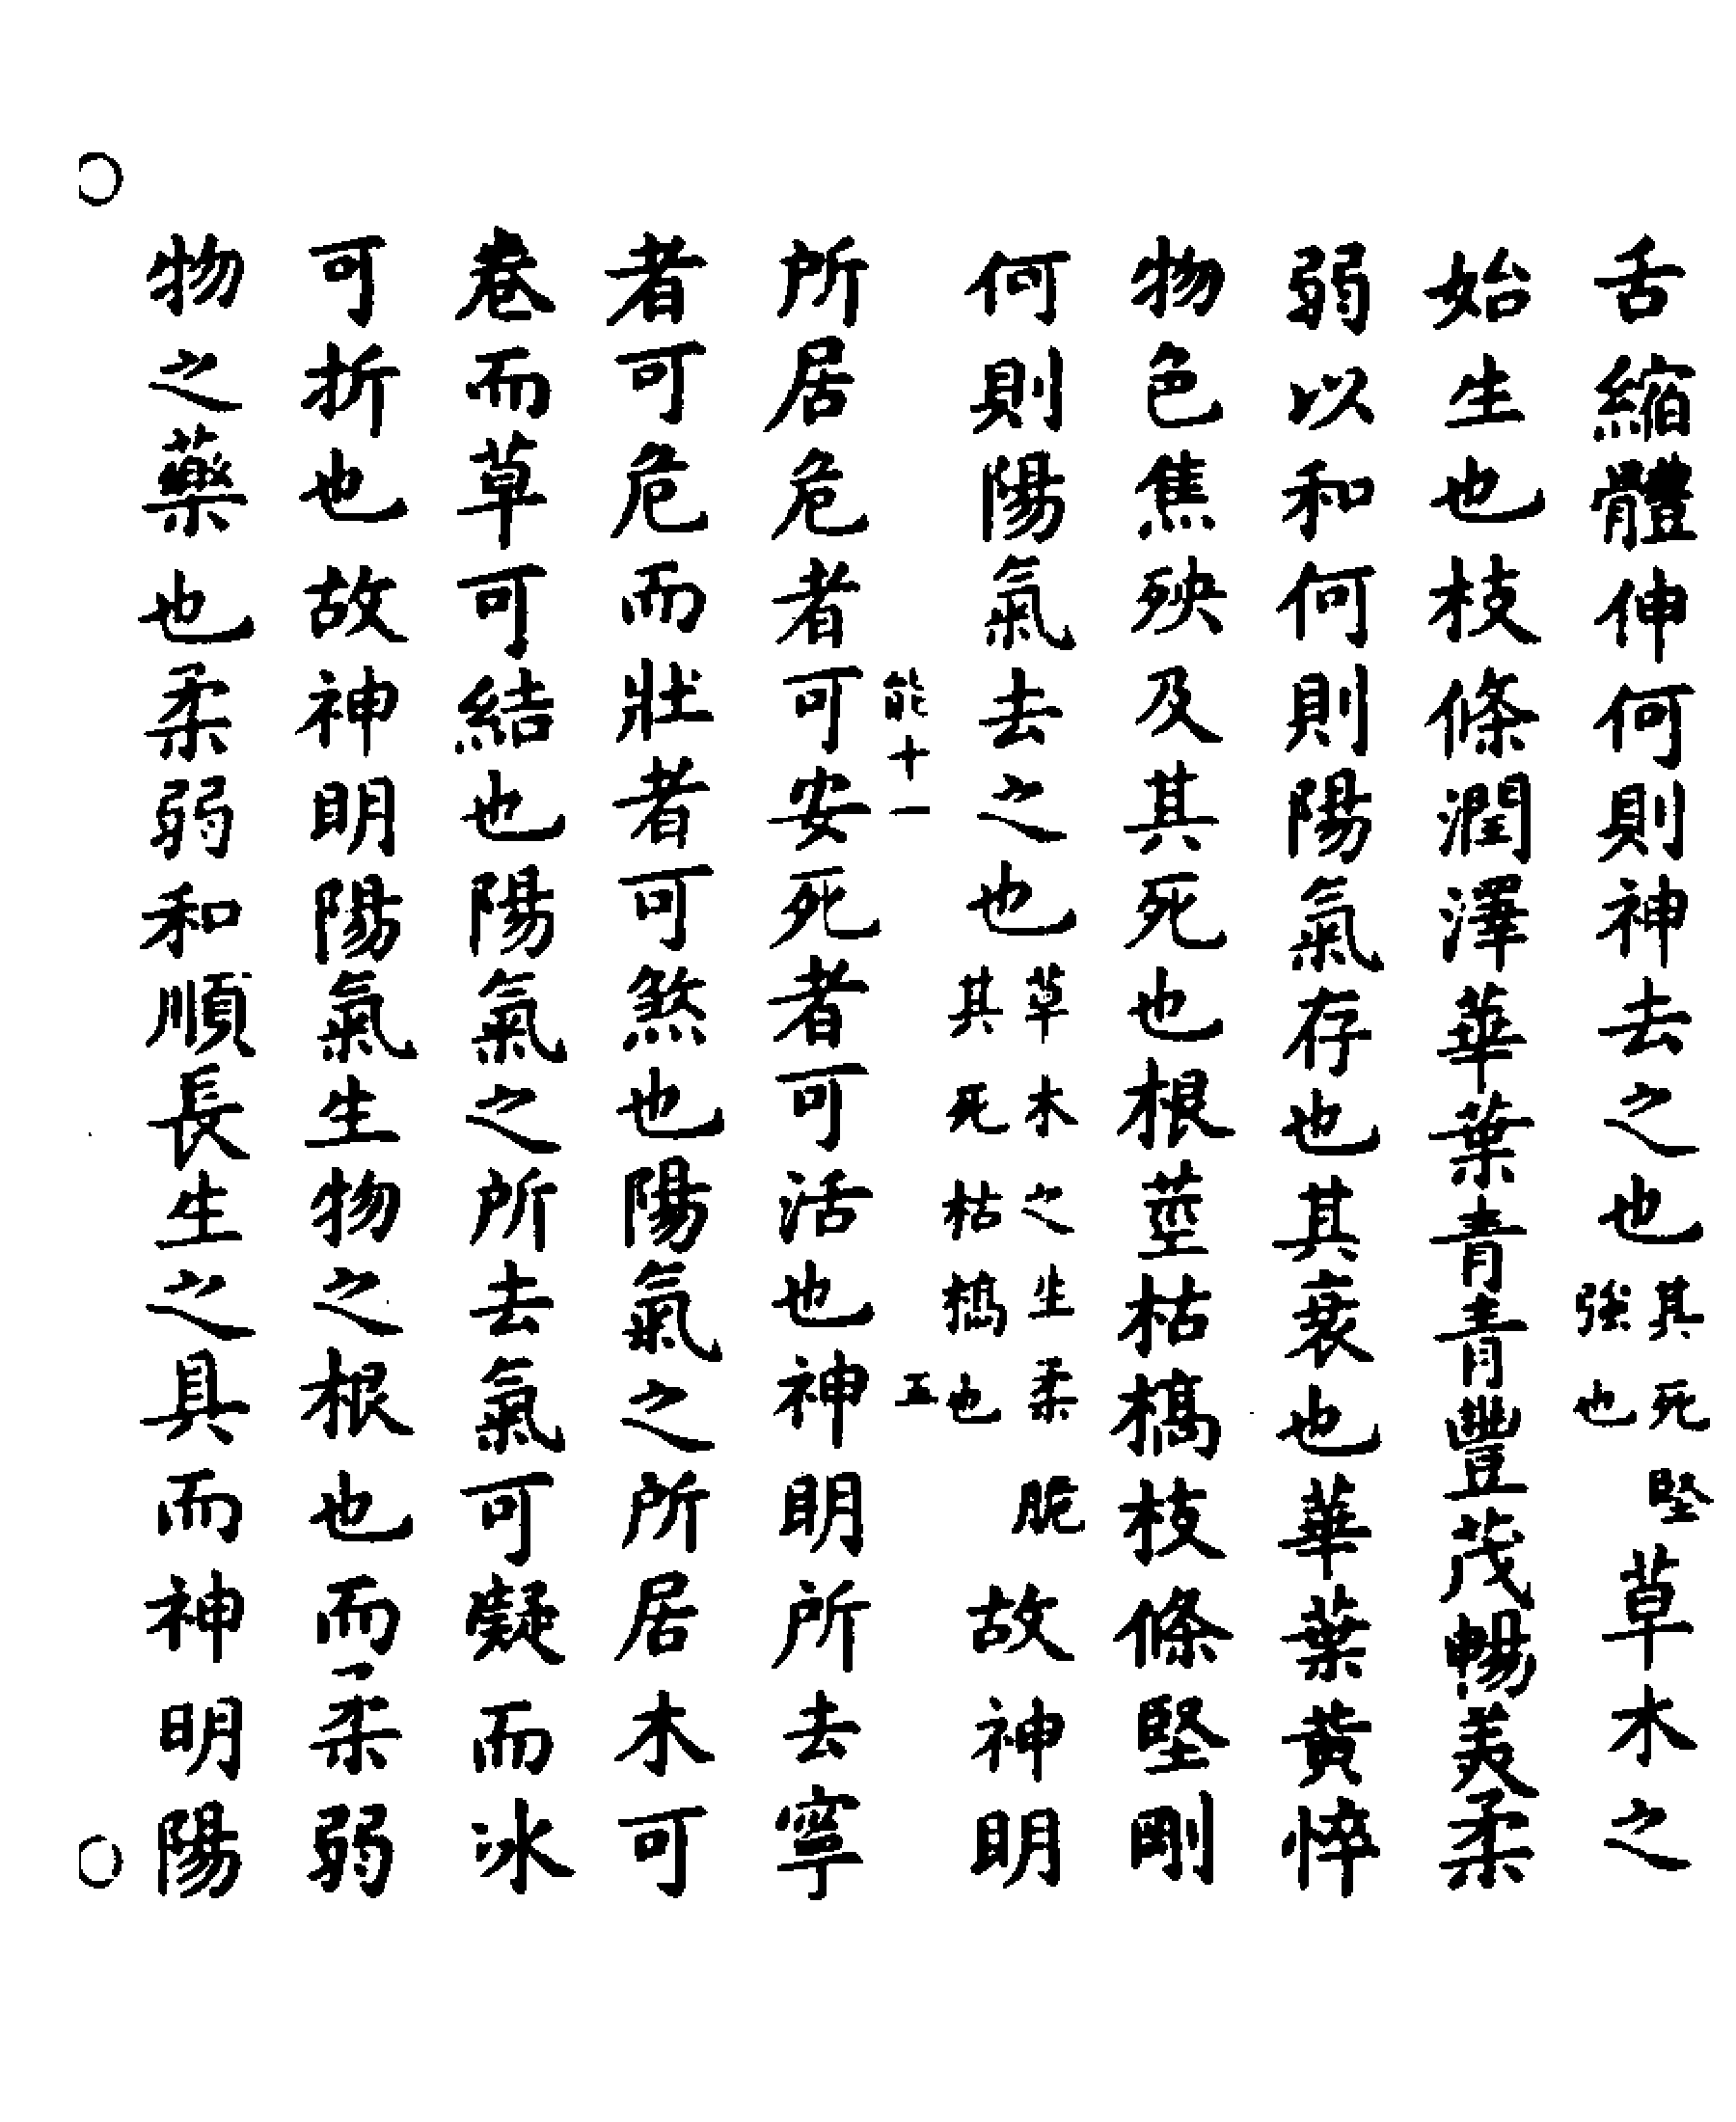 舌縮體伸何則神去之也其死堅強也草木之
始生也枝條潤澤華葉青青豐茂暢美柔
弱以和何則陽氣存也其衰也華葉黃悴
物色焦殃及其死也根莖枯槁枝條堅剛
何則陽氣去之也草木之生柔脆其死枯槁也故神明
能十一 五
所居危者可安死者可活也神明所去寧
者可危而壯者可煞也陽氣之所居木可
卷而草可結也陽氣之所去氣可凝而冰
可折也故神明陽氣生物之根也而柔弱
物之藥也柔弱和順長生之具而神明陽